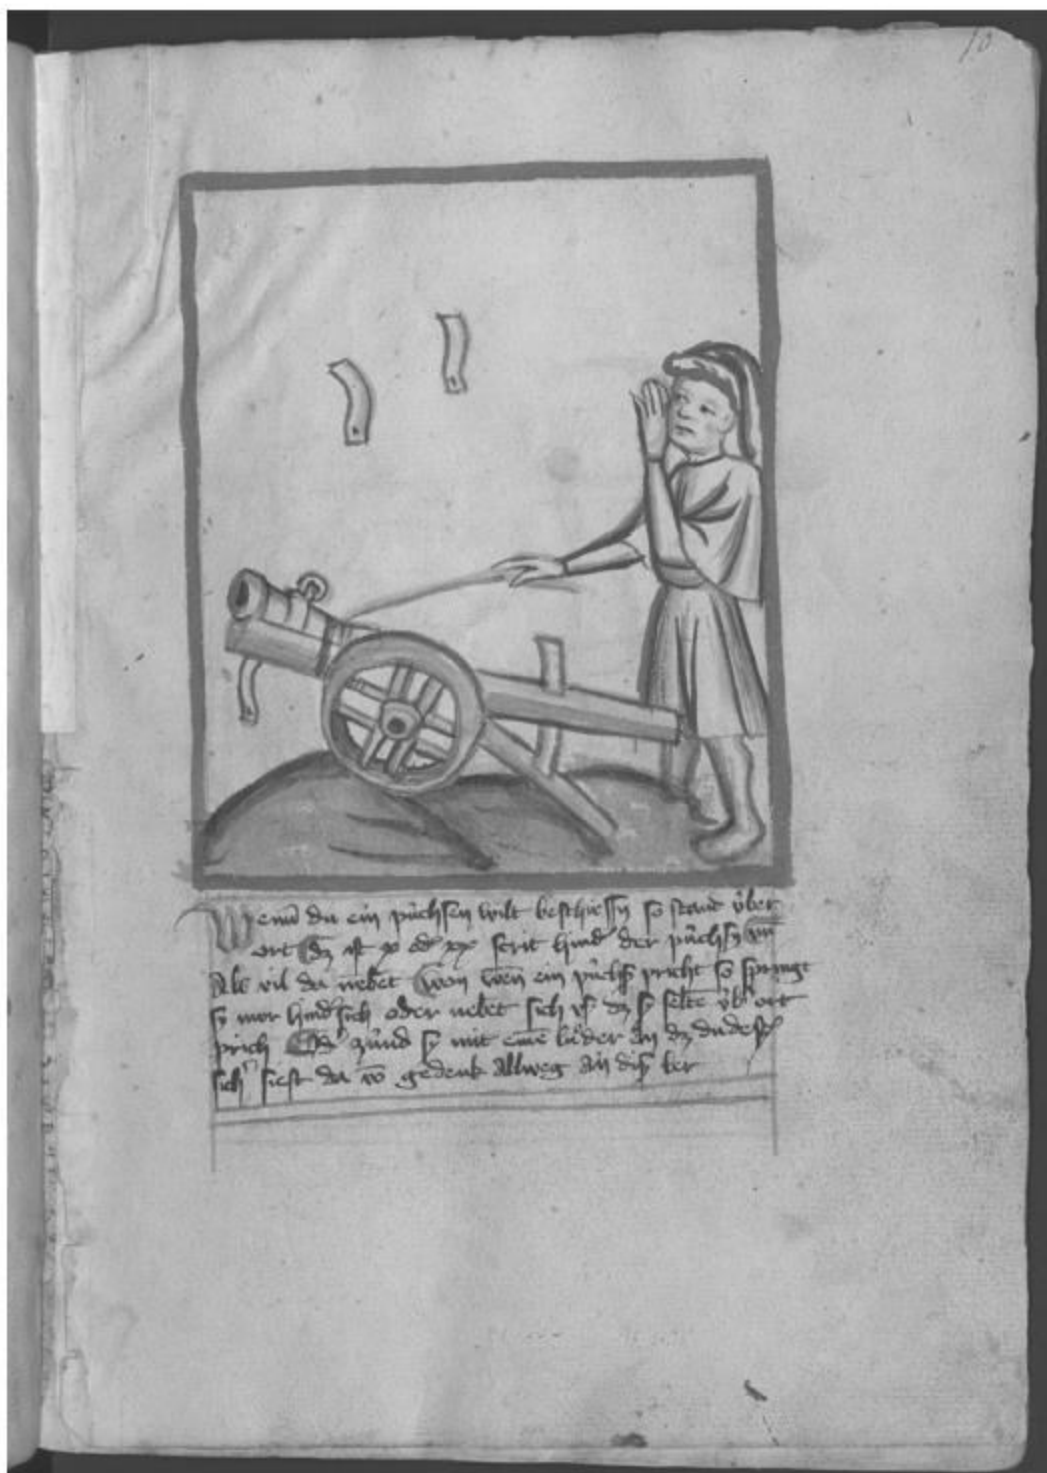 10
Wenn du ein püchsen wilt beschiessñ so stand über
ort dz ist x od' xx scrit hind' der püchsñ vñ
Als vil da nebēt won wēn ein püchß pricht so springt
sy nwr hind'sich oder nebēt sich vß dz sy seltē üb' ort
prich Od' zünd sy mit eine lüder An dz du dest
sich' siest da vō gedenk Allweg An diß ler